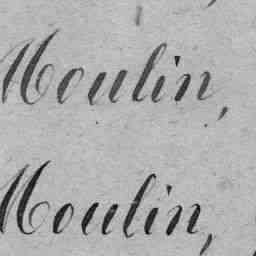 Moulin,
Moulin,